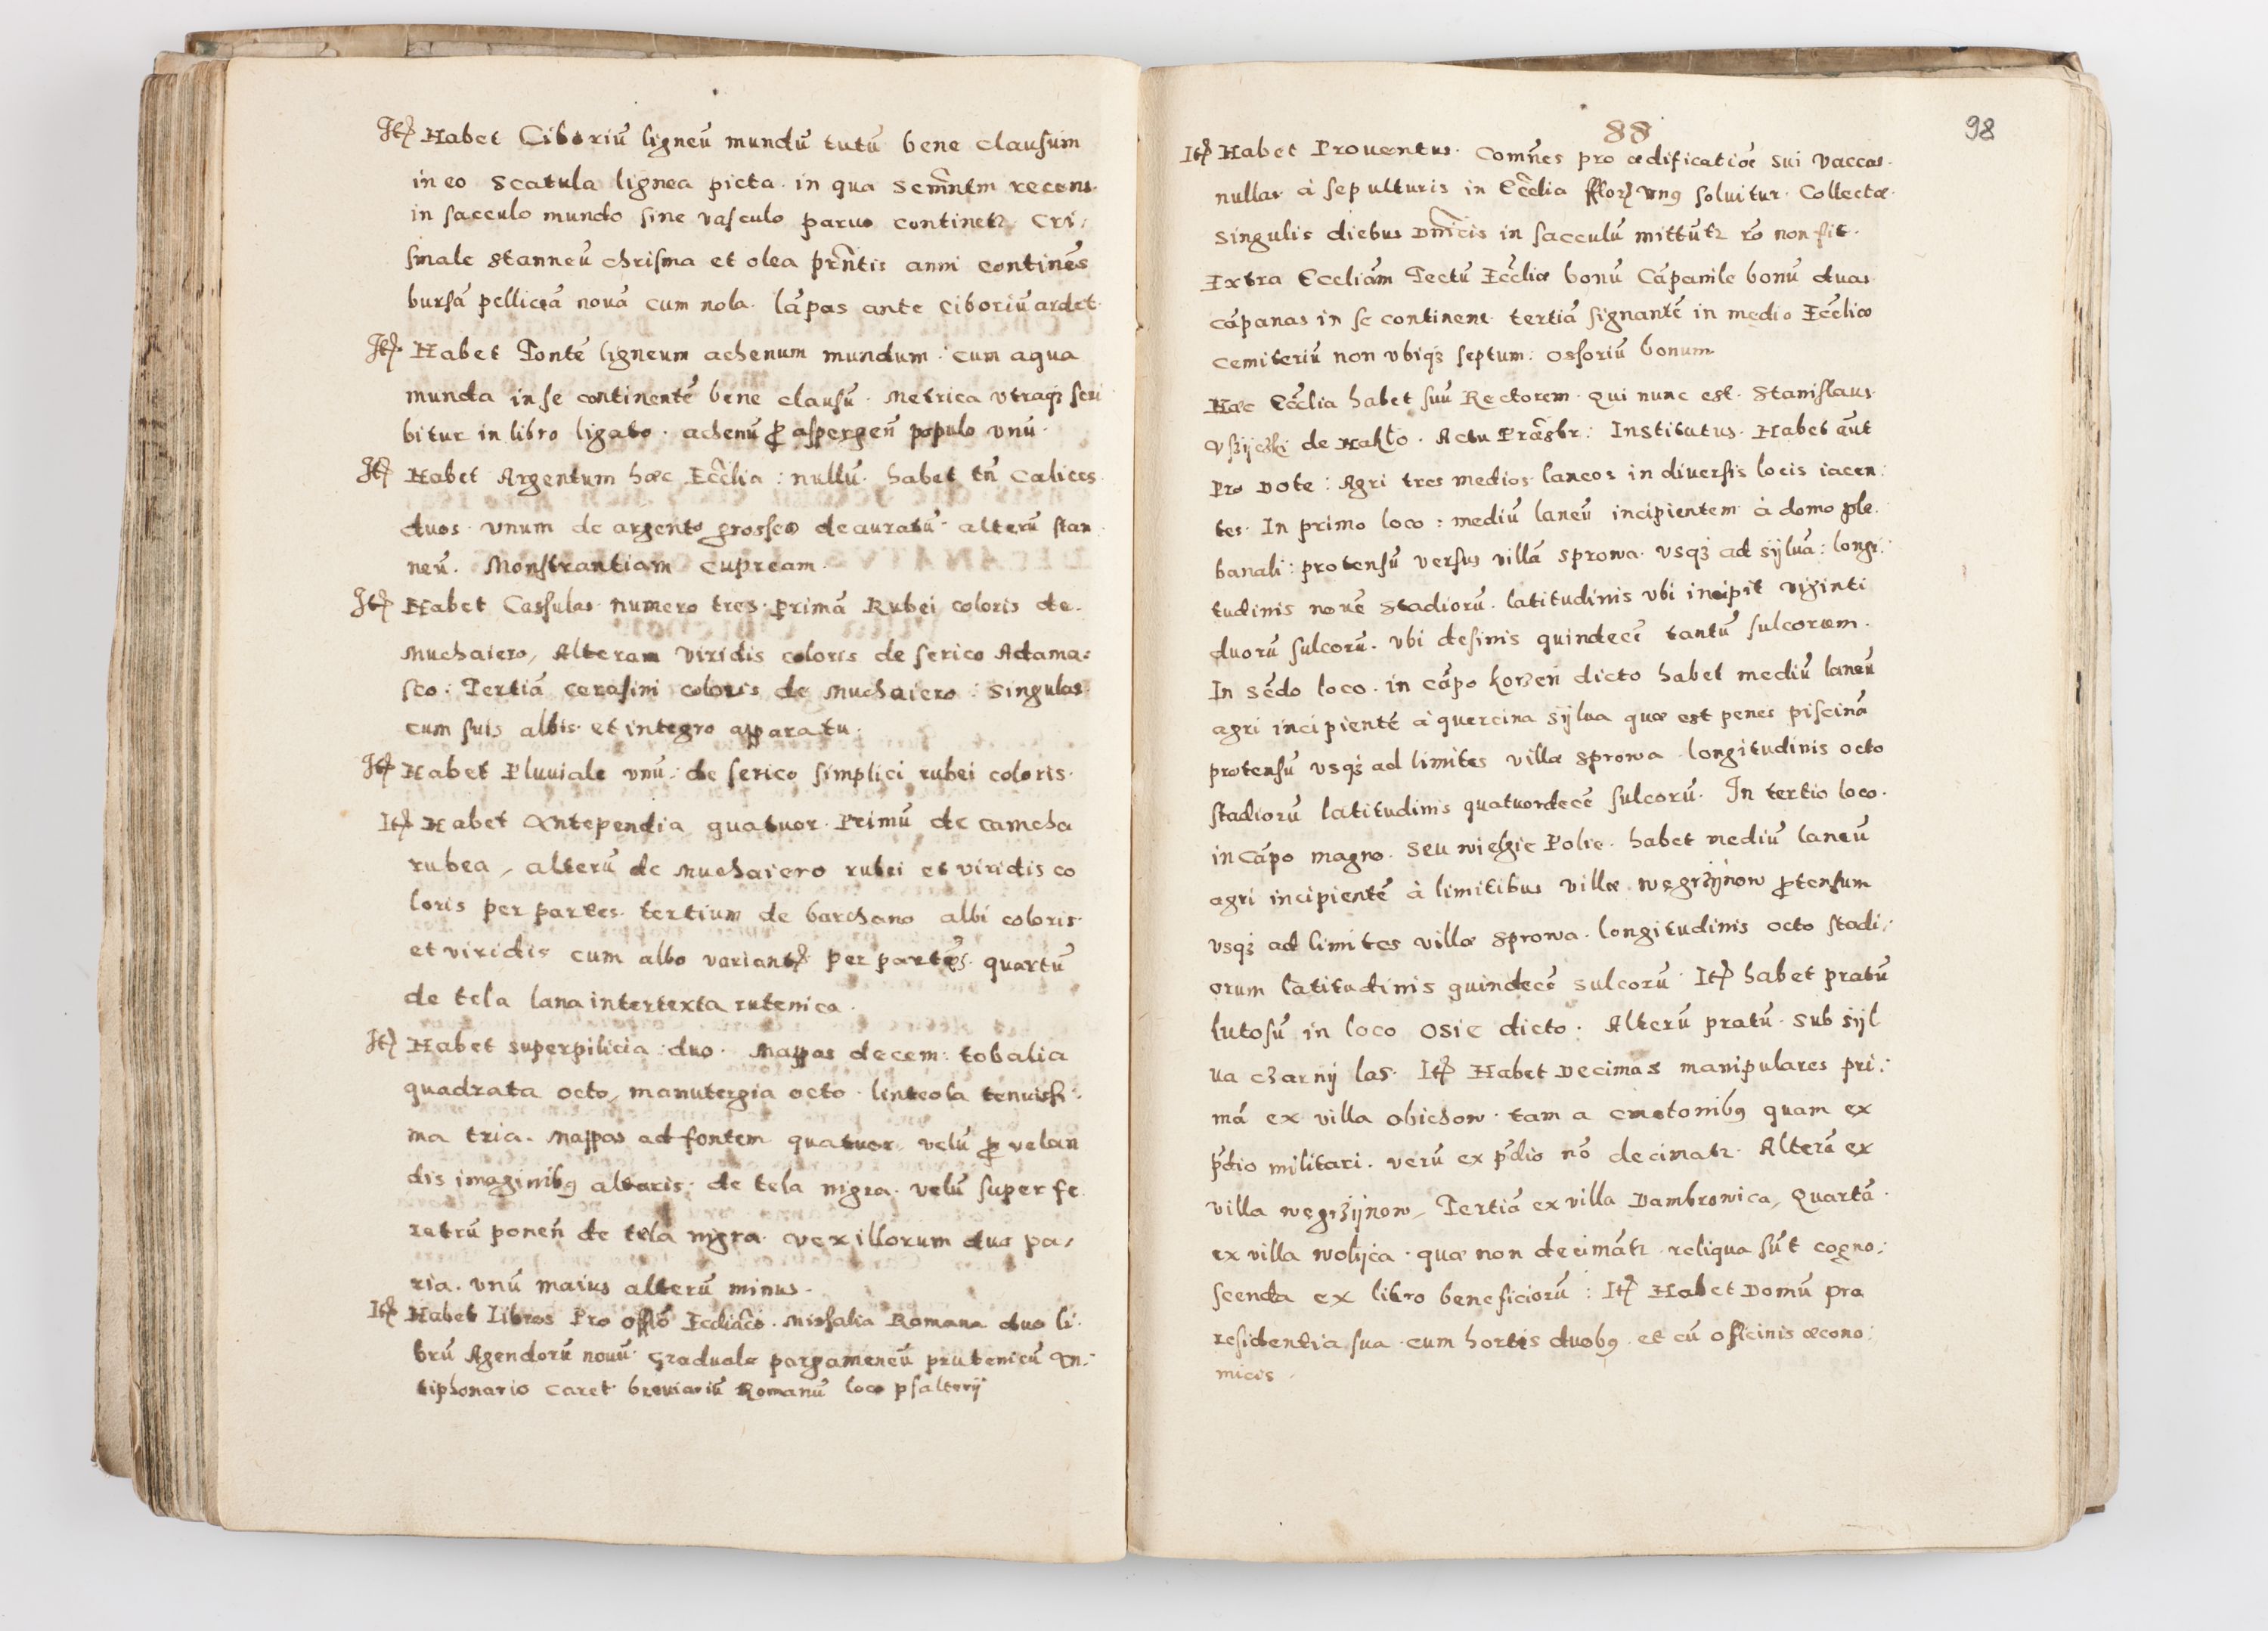 Itꝫ Habet Ciboriū ligneū mundū tutū bene clausum
in eo Scatula lignea picta. in qua Scm̃ntm recens.
in sacculo mundo sine vasculo paruo continetꝛ. Cri:
smale stanneū chrisma et olea prñtis anni continēs
bursā pelliceā nouā cum nola. lāpas ante ciboriū ardet.
Itꝫ Habet Fontē ligneum achenum mundum. cum aqua
munda in se continentē bene clausū. Metrica vtraqꝫ scri
bitur in libro ligato. achenū ꝓ aspergeñ populo vnū.
Itꝫ Habet Argentum hæc Eccl̃ia: nullū. habet tñ Calices
duos. vnum de argento grosseo deauratū. alterū stan
neū. Monstrantiam Cupream.
Itꝫ Habet Cassulas numero tres. primā Rubei coloris de.
Muchaiero, Alteram viridis coloris de serico Adama:
sco: Tertiā cerasini coloris de Muchaiero: Singulas.
cum suis albis. et integro apparatu.
Itꝫ Habet Pluuiale vnū. de serico simplici rubei coloris.
Itꝫ Habet Antependia quatuor. Primū de camcha
rubea, alterū de Muchaiero rubei et viridis co
loris per partes. tertium de barchano albi coloris.
et viridis cum albo variantꝫ per partes. quartū
de tela lana intertexta rutenica.
Itꝫ Habet superpilicia: duo. Mappas decem: tobalia
quadrata octo, manutergia octo. linteola tenuissi:
ma tria. Mappas ad fontem quatuor. velū ꝓ velan
dis imaginibꝰ altaris. de tela nigra. velū super fe
retrū poneñ de tela nigra. vexillorum duo pa,
ria. vnū maius alterū minus.
Itꝫ Habet Libros Pro offō Eccliãco. Missalia Romana duo li.
brū Agendorū nouū. Graduale pargameneū prutenicū An:
tiphonario caret. breuiariū Romanū loco psalterij
88
98
Itꝫ Habet Prouentus. Com̃nes pro ædificatiōe sui vaccas.
nullas à sepulturis in Eccl̃ia fflorꝫ vnꝰ soluitur. Collectæ.
Singulis diebus Dnĩcis in sacculū mittūtꝛ rō non fit.
Extra Eccliām Tectū Eccl̃iæ bonū Cāpanile bonū duas
cāpanas in se continens. tertiā signantē in medio Eccl̃iæ
Cemiteriū non vbiqꝫ septum: Ossoriū bonum.
Hæc Eccl̃ia habet suū Rectorem. Qui nunc est. Stanislaus.
de Nakło. Actu Præsbr: Institutus. Habet aūt
Pro Dote: Agri tres medios laneos in diuersis locis iacen:
tes. In primo loco: mediū laneū incipientem à domo ple.
banali: protensū versus villā Sprowa. vsqꝫ ad sijluā: longi:
tudinis nouē Stadiorū. latitudinis vbi incipit viginti
duorū sulcorū. vbi desinis quindecē tantū sulcorum.
In Sēdo loco. in cāpo korzeń dicto habet mediū laneū
agri incipientē à quercina sijlua quæ est penes piscinā
protensū vsqꝫ ad limites villæ Sprowa longitudinis octo
stadiorū latitudinis quatuordecē sulcorū. In tertio loco.
in Cāpo magno. Seu wielgie Polie. habet mediū laneū
agri incipientē à limitibus villæ węgrżijnow ꝓtensum
vsqꝫ ad limites villæ Sprowa. longitudinis octo stadi:
orum latitudinis quindecē sulcorū. Itꝫ habet pratū
lutosū in loco Osie dicto: Alterū pratū. Sub sijl
ua czarnij las. Itꝫ Habet Decimas manipulares pri:
mā ex villa obichow. tam a cmetonibꝰ quam ex
pdio militari. verū ex pdio nō decimatꝛ. Alterā ex
villa węgrżijnow, Tertiā ex villa Dambrowica, Quartā.
ex villa wolijca. quæ non decimātꝛ. reliqua sūt cogno:
scenda ex libro beneficiorū: Itꝫ Habet Domū pro
residentia sua. cum hortis duobꝰ. et cū officinis œcono:
micis.